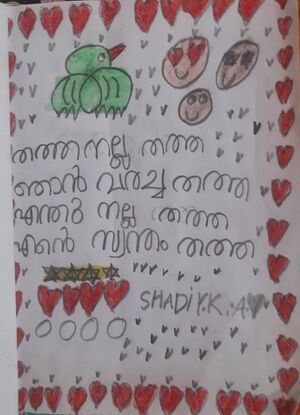 തത്ത നല്ല തത്ത
ഞാൻ വരച്ച തത്ത
എന്തൊരു നല്ല തത്ത
എന്റെ സ്വന്തം തത്ത
SHADiYK.K.